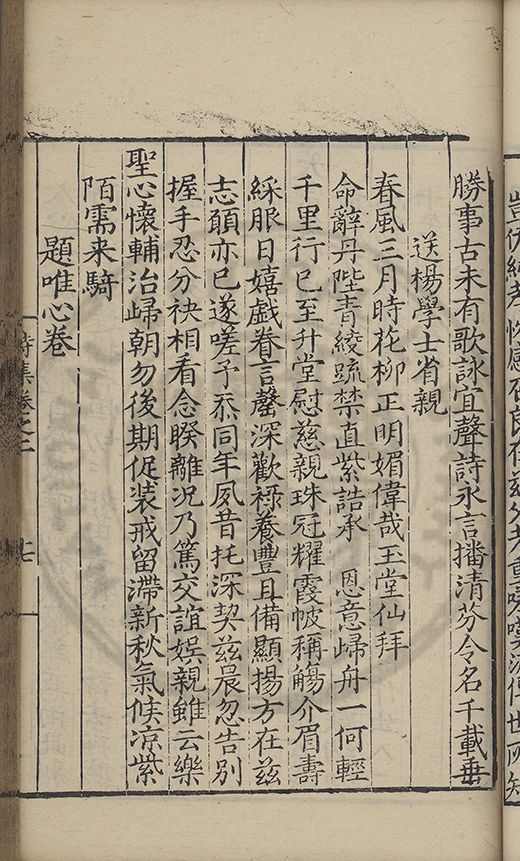 勝事古未有歌詠宜聲詩永言播清芬令名千載垂
送楊學士省親
春風三月時花柳正明媚偉哉玉堂仙拜
命辭丹陛青綾疏禁直紫誥承　恩意歸舟一何輕
千里行已至升堂慰慈親珠冠耀霞帔稱觴介眉壽
綵服日嬉戲眷言罄深歡祿養豐且備顯揚方在茲
志願亦已遂嗟予忝同年夙昔托深契茲晨忽告別
握手忍分袂相看念暌離況乃篤交誼娛親雖云樂
聖心懷輔治歸朝勿後期促装戒留滯新秋氣候凉紫
陌需来騎
題唯心卷
詩集卷之二
七